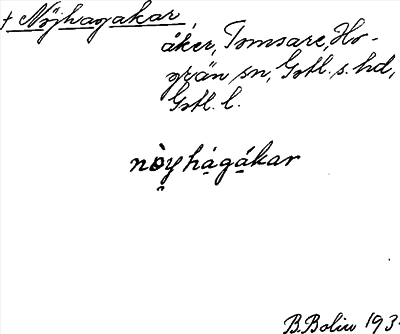 † Nöjhagakar,
åker, Tomsare, Ho-
grän sn, Gotl. s. hd,
Gotl. l.
nòyhágákar
B. Bolin 193